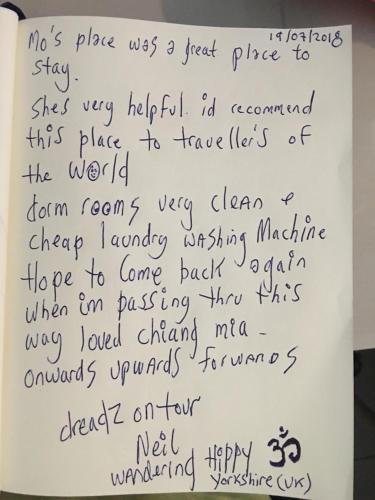 19/07/2018
Mo's place was a great place to
stay.
shes very helpful. id recommend
this place to traveller's of
the world
dorm rooms very clean &
cheap laundry washing Machine
Hope to Come back again
when im passing thru this
way loved chiang mia -
onwards upwards forwards
dreadz on tour
Neil
wandering Hippy ॐ
Yorkshire (UK)